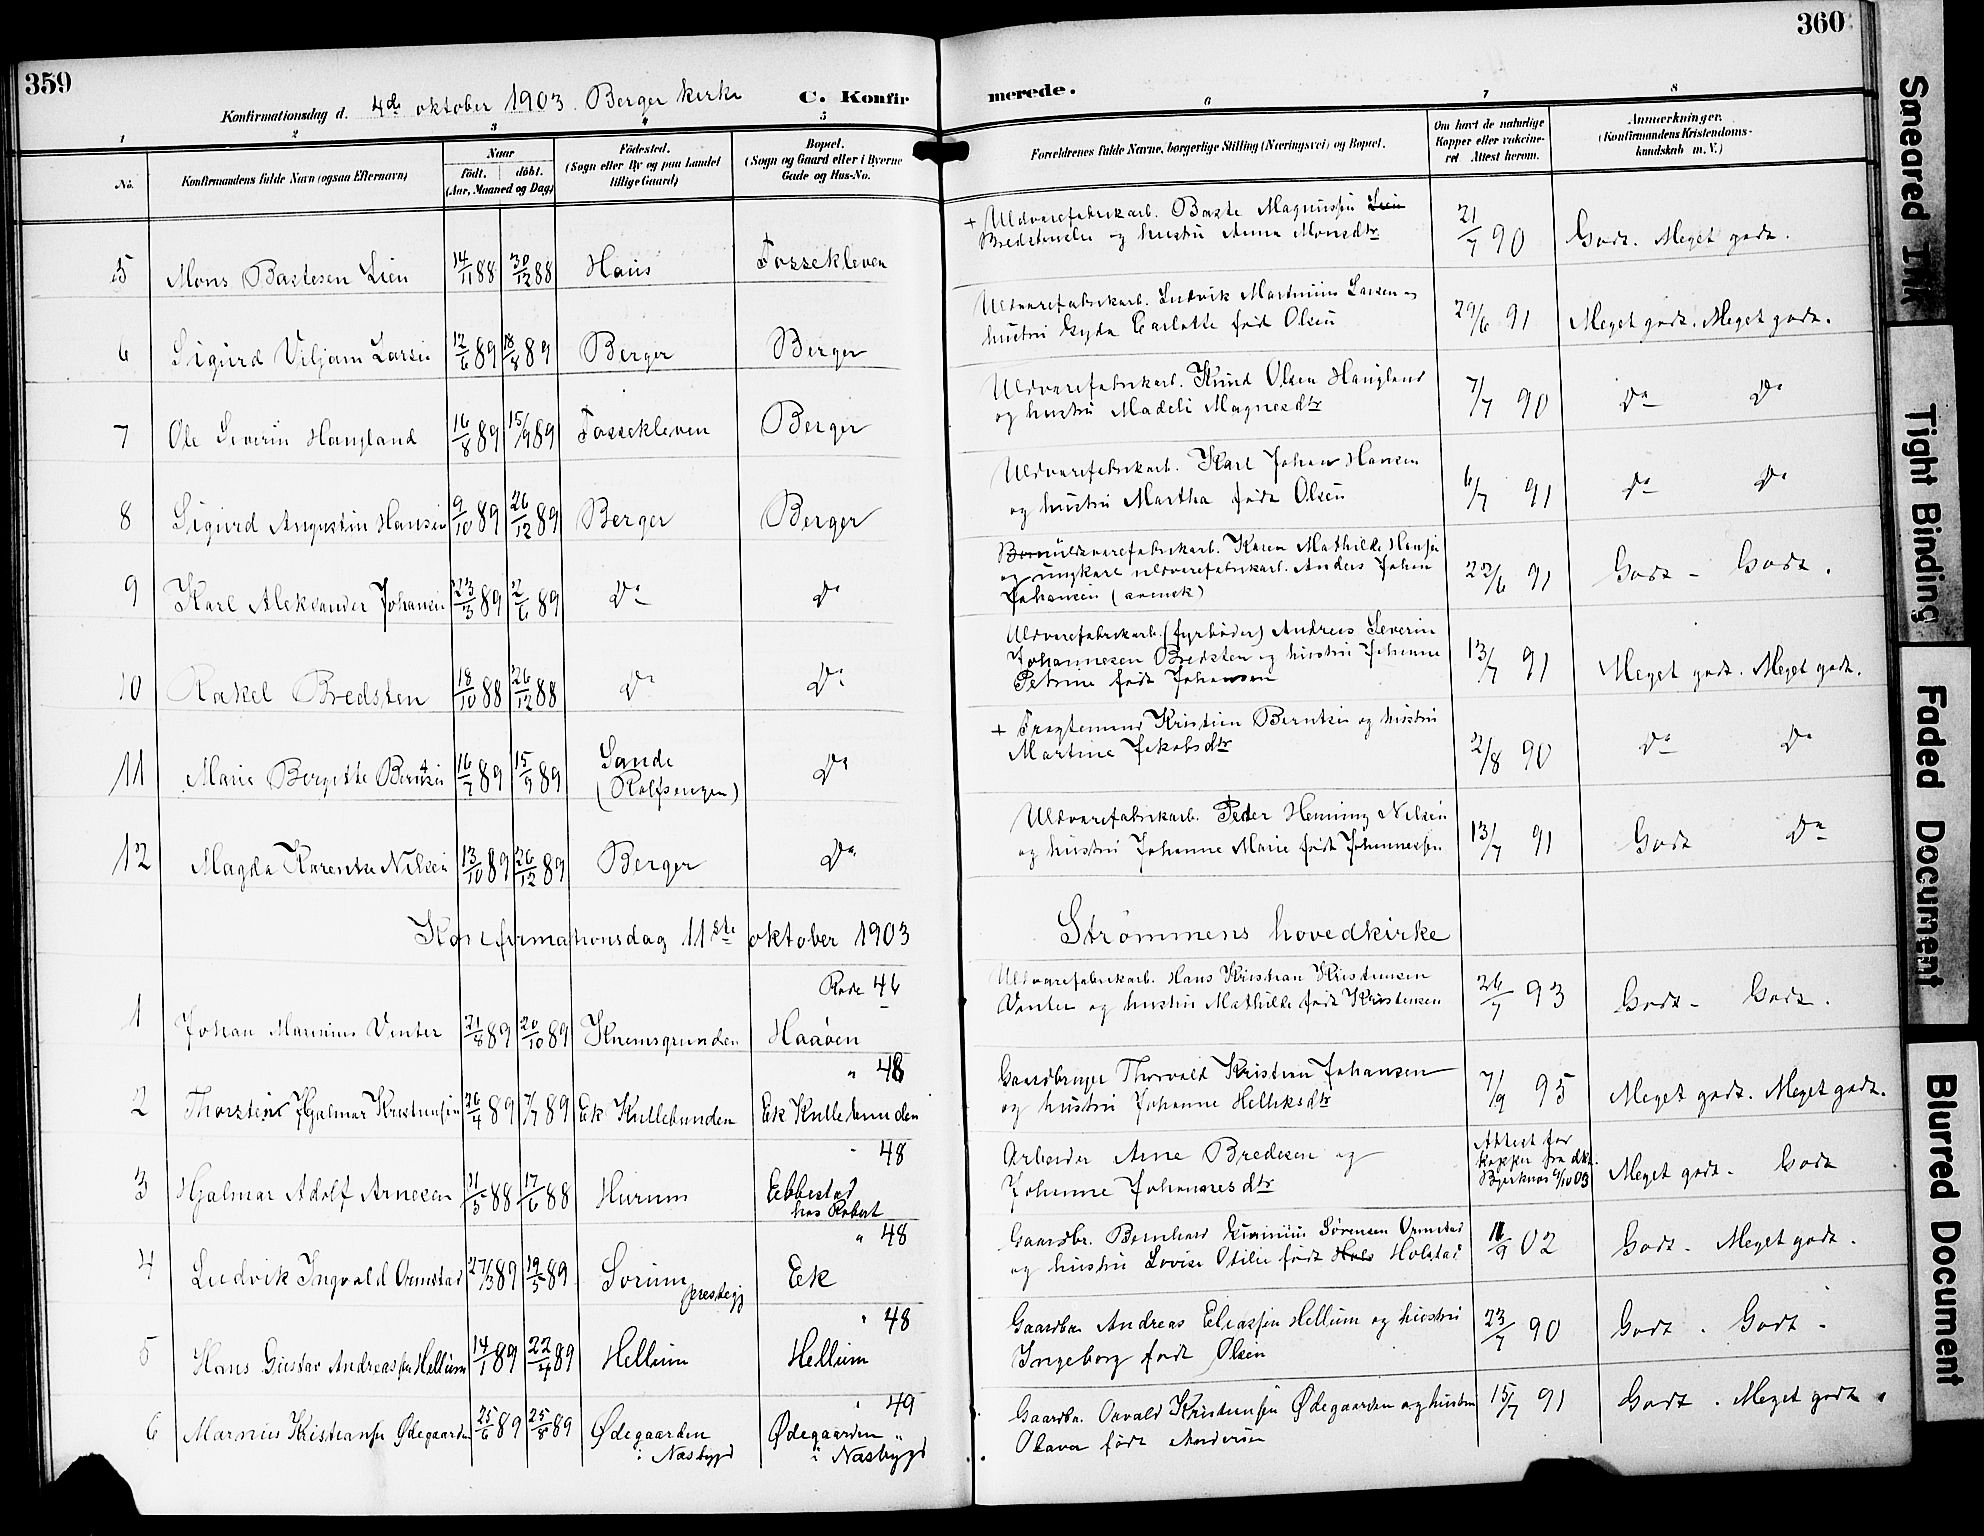 359
Konfirmationsdag d. 4de oktober 1903. Berger kirke
C. Konfir
1
2
3
4
5
No.
Konfirmandens fulde Navn (ogsaa Efternavn)
Naar
født. døbt.
(Aar, Maaned og Dag)
Fødested.
(Sogn eller By og paa Landet
tillige Gaard)
Bopæl.
(Sogn og Gaard eller i Byerne
Gade og Hus-No.
5 Mons Bastesen Lien 14/11 88 30/12 88 Haus Fossekleven
6 Sigurd Viljam Larsen 12/6 89 18/8 89 Berger Berger
7 Ole Severin Haugland 16/8 89 15/9 89 Fossekleven Berger
8 Sigurd Augustin Hansen 9/10 89 26/12 89 Berger Berger
9 Karl Aleksander Johansen 23/3 89 2/6 89 Do Do
10 Rakel Bredsten 18/10 88 26/12 88 Do Do
11 Marie Bergitte Berntsen 16/7 89 15/9 89 Sande
(Rolfsengen) Do
12 Magda Karentse Nilsen 13/10 89 26/12 89 Berger Do
Konfirmationsdag 11ste oktober 1903
Rode 46
1 Johan Marinius Vinter 21/8 89 20/10 89 Knemsgrunden Haaøen
" 48
2 Thorstein Hjalmar Kristiansen 26/4 89 7/7 89 Ek Kullebunden Ek Kullebunden
" 48
3 Hjalmar Adolf Arnesen 21/5 88 17/6 88 Hurum Ebbestad
hos Robert
" 48
4 Ludvik Ingvald Ormstad 27/3 89 19/5 89 Sørum
prestegj Ek
" 48
5 Hans Gustav Andreassen Hellum 14/1 89 22/4 89 Hellum Hellum
" 49
6 Marnius Kristiansen Ødegaarden 25/6 89 25/8 89 Ødegaarden
i Nasbygd Ødegaarden
i Nasbygd
360
merede.
6
7
8
Forældrenes fulde Navne, borgerlige Stilling (Næringsvei) og Bopæl.
Om havt de naturlige
Kopper eller vakcine-
ret Attest herom.
Anmærkninger.
(Konfirmandens Kristendoms-
kundskab m. V.)
+ Uldvarefabrikarb. Baste Magnussen Lien
og hustru Anna Monsdtr 21/7 90 Godt. Meget godt.
Uldvarefabrikarb. Ludvik Martinius Larsen og
hustru Gyda Carlotte født Olsen 29/6 91 Meget godt. Meget godt.
Uldvarefabrikarb. Knud Olsen Haugland
og hustru Madeli Magnesdtr 7/7 90 Do Do
Uldvarefabrikarb. Karl Johan Hansen
og hustru Martha født Olsen 6/7 91 Do Do
uldvarefabrikarb. Karen Mathilde Hansen
og ungkarl uldvarefabrikarb. Anders Johan
Johansen (svensk) 22/6 91 Godt - Godt.
Uldvarefabrikarb. (fyrbøder) Andreas Severin
Johannesen Bredsten og hustru Johanne
Petrine født Johansen 13/7 91 Meget godt. Meget godt.
+ Fragtemand Kristian Berntsen og hustru
Martine Jakobsdtr 2/8 90 Do Do
Uldvarefabrikarb. Peder Henning Nilsen
og hustru Johanne Marie født Johannessen 13/7 91 Godt Do
Strømmens hovedkirke
Uldvarefabrikarb. Hans Kristian Kristensen
Vinter og hustru Mathilde født Kristensen 26/7 93 Godt - Godt.
Gaardbruger Thorvald Kristian Johansen
og hustru Johanne Helliksdtr 7/9 95 Meget godt. Meget godt.
Arbeider Arne Bredesen og
Johanne Johannesdtr Attest for
kopper fra dkt.
Bjerknes 6/10 03 Meget godt. Godt
Gaardbr. Bernhard Sørensen Ormstad
og hustru Lovise Otilie født Hols Holstad 11/9 02 Godt. Meget godt.
Gaardbr. Andreas Eliassen Hellum og hustru
Ingeborg født Olsen 23/7 90 Godt. Godt.
Gaardbr. Osvald Kristiansen Ødegaarden og hustru
Olava født Andersen 15/7 91 Godt. Meget godt.
Smeared Ink
Tight Binding
Faded Document
Blurred Document